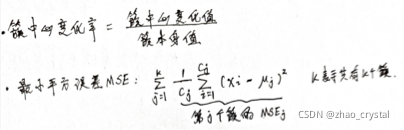 · 簇中心变化率 = 簇中心变化值 / 簇本身值
· 最小平方误差 MSE: \sum_{j=1}^{k} \frac{1}{C_j} \sum_{i=1}^{C_j} (x_i - μ_j)^2 k表示共有k个簇.
第j个簇的 MSE_j
CSDN @zhao_crystal